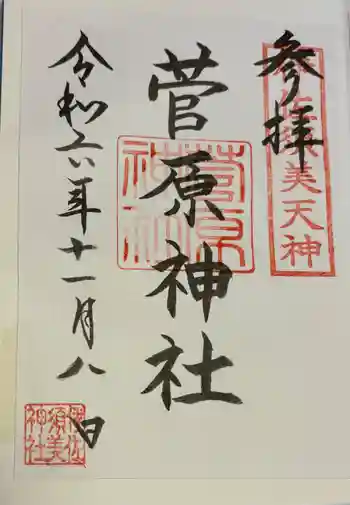 参拝
佐須美天神
菅原神社
菅原神社
令和六年十一月八日
伊佐須美神社